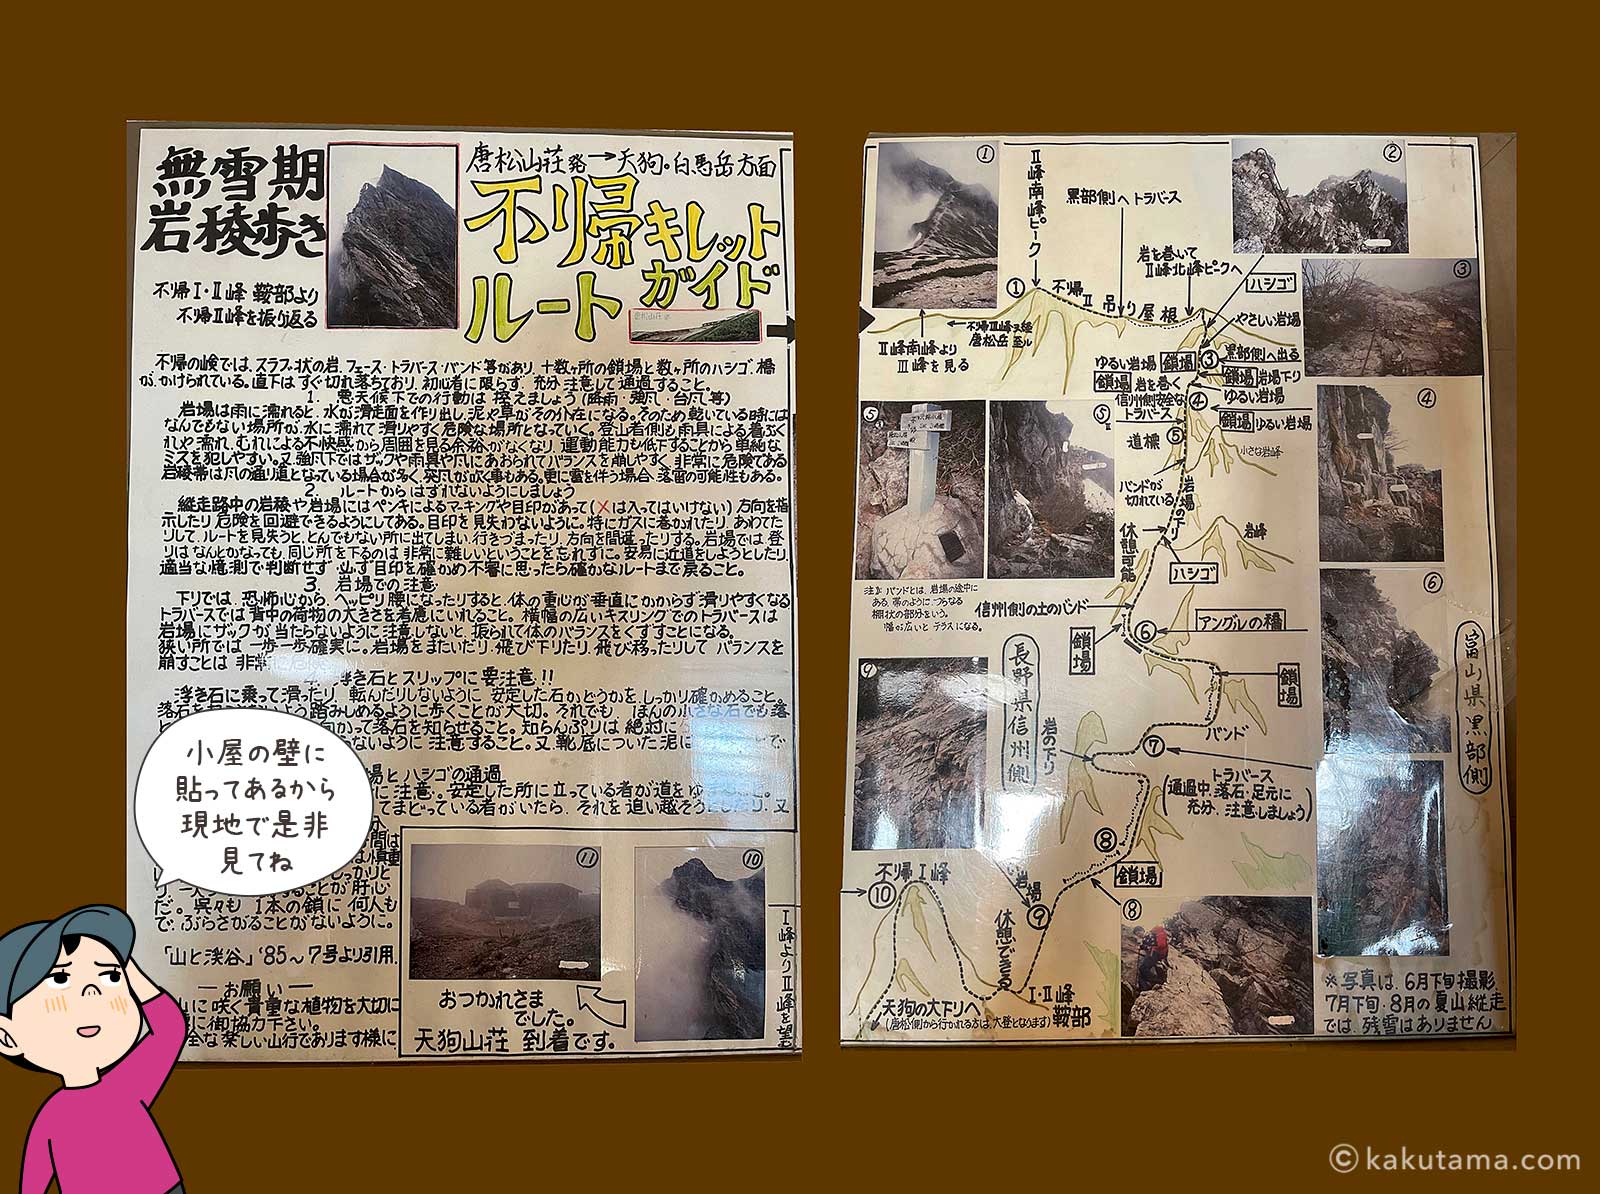 無雪期
岩稜歩き
不帰Ⅰ・Ⅱ峰 鞍部より
不帰Ⅱ峰を振り返る
唐松山荘発→天狗・白馬岳方面
不帰キレット
ルートガイド
不帰の嶮では、スラブ状の岩、フェース・トラバース・バンド等があり、十数ヶ所の鎖場と数ヶ所のハシゴ、橋
が、かけられている。直下はすぐ切れ落ちており、初心者に限らず、充分注意して通過すること。
1. 悪天候下での行動は控えましょう(降雨・強風・台風等)
岩場は雨に濡れると、水が滑走面を作り出し、泥や草がその介在になる。そのため乾いている時には
なんでもない場所が、水に濡れて滑りやすく危険な場所となっていく。登山者側も雨具による着ぶく
れや濡れ、むれによる不快感から周囲を見る余裕がなくなり、運動能力も低下することから単純な
ミスを犯しやすい。又、強風下ではザックや雨具や風にあおられてバランスを崩しやすく、非常に危険である
岩稜帯は風の通り道となっている場合が多く、突風が吹く事もある。更に雷を伴う場合、落雷の可能性もある。
2. ルートからはずれないようにしましょう
縦走路中の岩稜や岩場にはペンキによるマーキングや目印があって(×は入ってはいけない)方向を指
示したり、危険を回避できるようにしてある。目印を見失わないように。特にガスに巻かれたり、あわてた
りして、ルートを見失うと、とんでもない所に出てしまい、行きづまったり、方向を間違ったりする。岩場では、登
りは なんとかなっても、同じ所を下るのは非常に難しいということを忘れずに。安易に近道をしようとしたり、
適当な憶測で判断せず、必ず目印を確かめ、不審に思ったら確かなルートまで戻ること。
3. 岩場での注意
下りでは、恐怖心から、ヘッピリ腰になったりすると、体の重心が垂直にかからず滑りやすくなる
トラバースでは背中の荷物の大きさを考慮にいれること。横幅の広いキスリングでのトラバースは
岩場にザックが当たらないように注意しないと、振られて体のバランスをくずすことになる。
狭い所では一歩一歩確実に。岩場をまたいだり、飛び下りたり、飛び移ったりしてバランスを
崩すことは 非常
浮き石とスリップに要注意!!
浮き石に乗って滑ったり、転んだりしないように、安定した石かどうかを、しっかり確かめること。
踏みしめるように歩くことが大切。それでも、ほんの小さな石でも落
かって落石を知らせること。知らんぷりは絶対に
ないように注意すること。又、靴底についた泥は
場とハシゴの通過
に注意。安定した所に立っている者が道を
てまどっている者がいたら、それを追い越そう
ことが肝心
だ。呉々も、1本の鎖に何人も
で、ぶらさがることがないように。
「山と渓谷」'85〜7号より引用.
—お願い—
山に咲く貴重な植物を大切に
に御協力下さい。
全な楽しい山行であります様に
⑪
⑩
おつかれさま
でした。
天狗山荘 到着です。
Ⅰ峰よりⅡ峰を望む
小屋の壁に
貼ってあるから
現地で是非
見てね
①
Ⅱ峰南峰ピーク
黒部側へトラバース
岩を巻いて
Ⅱ峰北峰ピークへ
②
ハシゴ
③
①
不帰Ⅱ吊り屋根
やさしい岩場
Ⅱ峰南峰より
Ⅲ峰を見る
ゆるい岩場
鎖場
③
黒部側へ出る
鎖場
岩を巻く
信州側安全な
トラバース
④
鎖場
岩場下り
ゆるい岩場
鎖場
ゆるい岩場
④
⑤
⑤
道標
⑤
小さな岩峰
バンドが
切れている
岩場の下り
休憩可能
岩峰
ハシゴ
注): バンドとは、岩場の途中に
ある、帯のようにつらなる
棚状の部分をいう。
幅が広いと テラスになる。
信州側の土のバンド
⑥
⑥
アングルの橋
鎖場
鎖場
長野県信州側
富山県黒部側
⑨
岩の下り
バンド
⑦
トラバース
(通過中、落石・足元に
充分、注意しましょう)
⑧
鎖場
⑧
不帰Ⅰ峰
⑩
岩場
⑨
休憩できる
Ⅰ・Ⅱ峰
鞍部
天狗の大下りへ
(唐松側から行かれる方は、大登となります)
※写真は、6月下旬撮影
7月下旬・8月の夏山縦走
では、残雪はありません
©kakutama.com